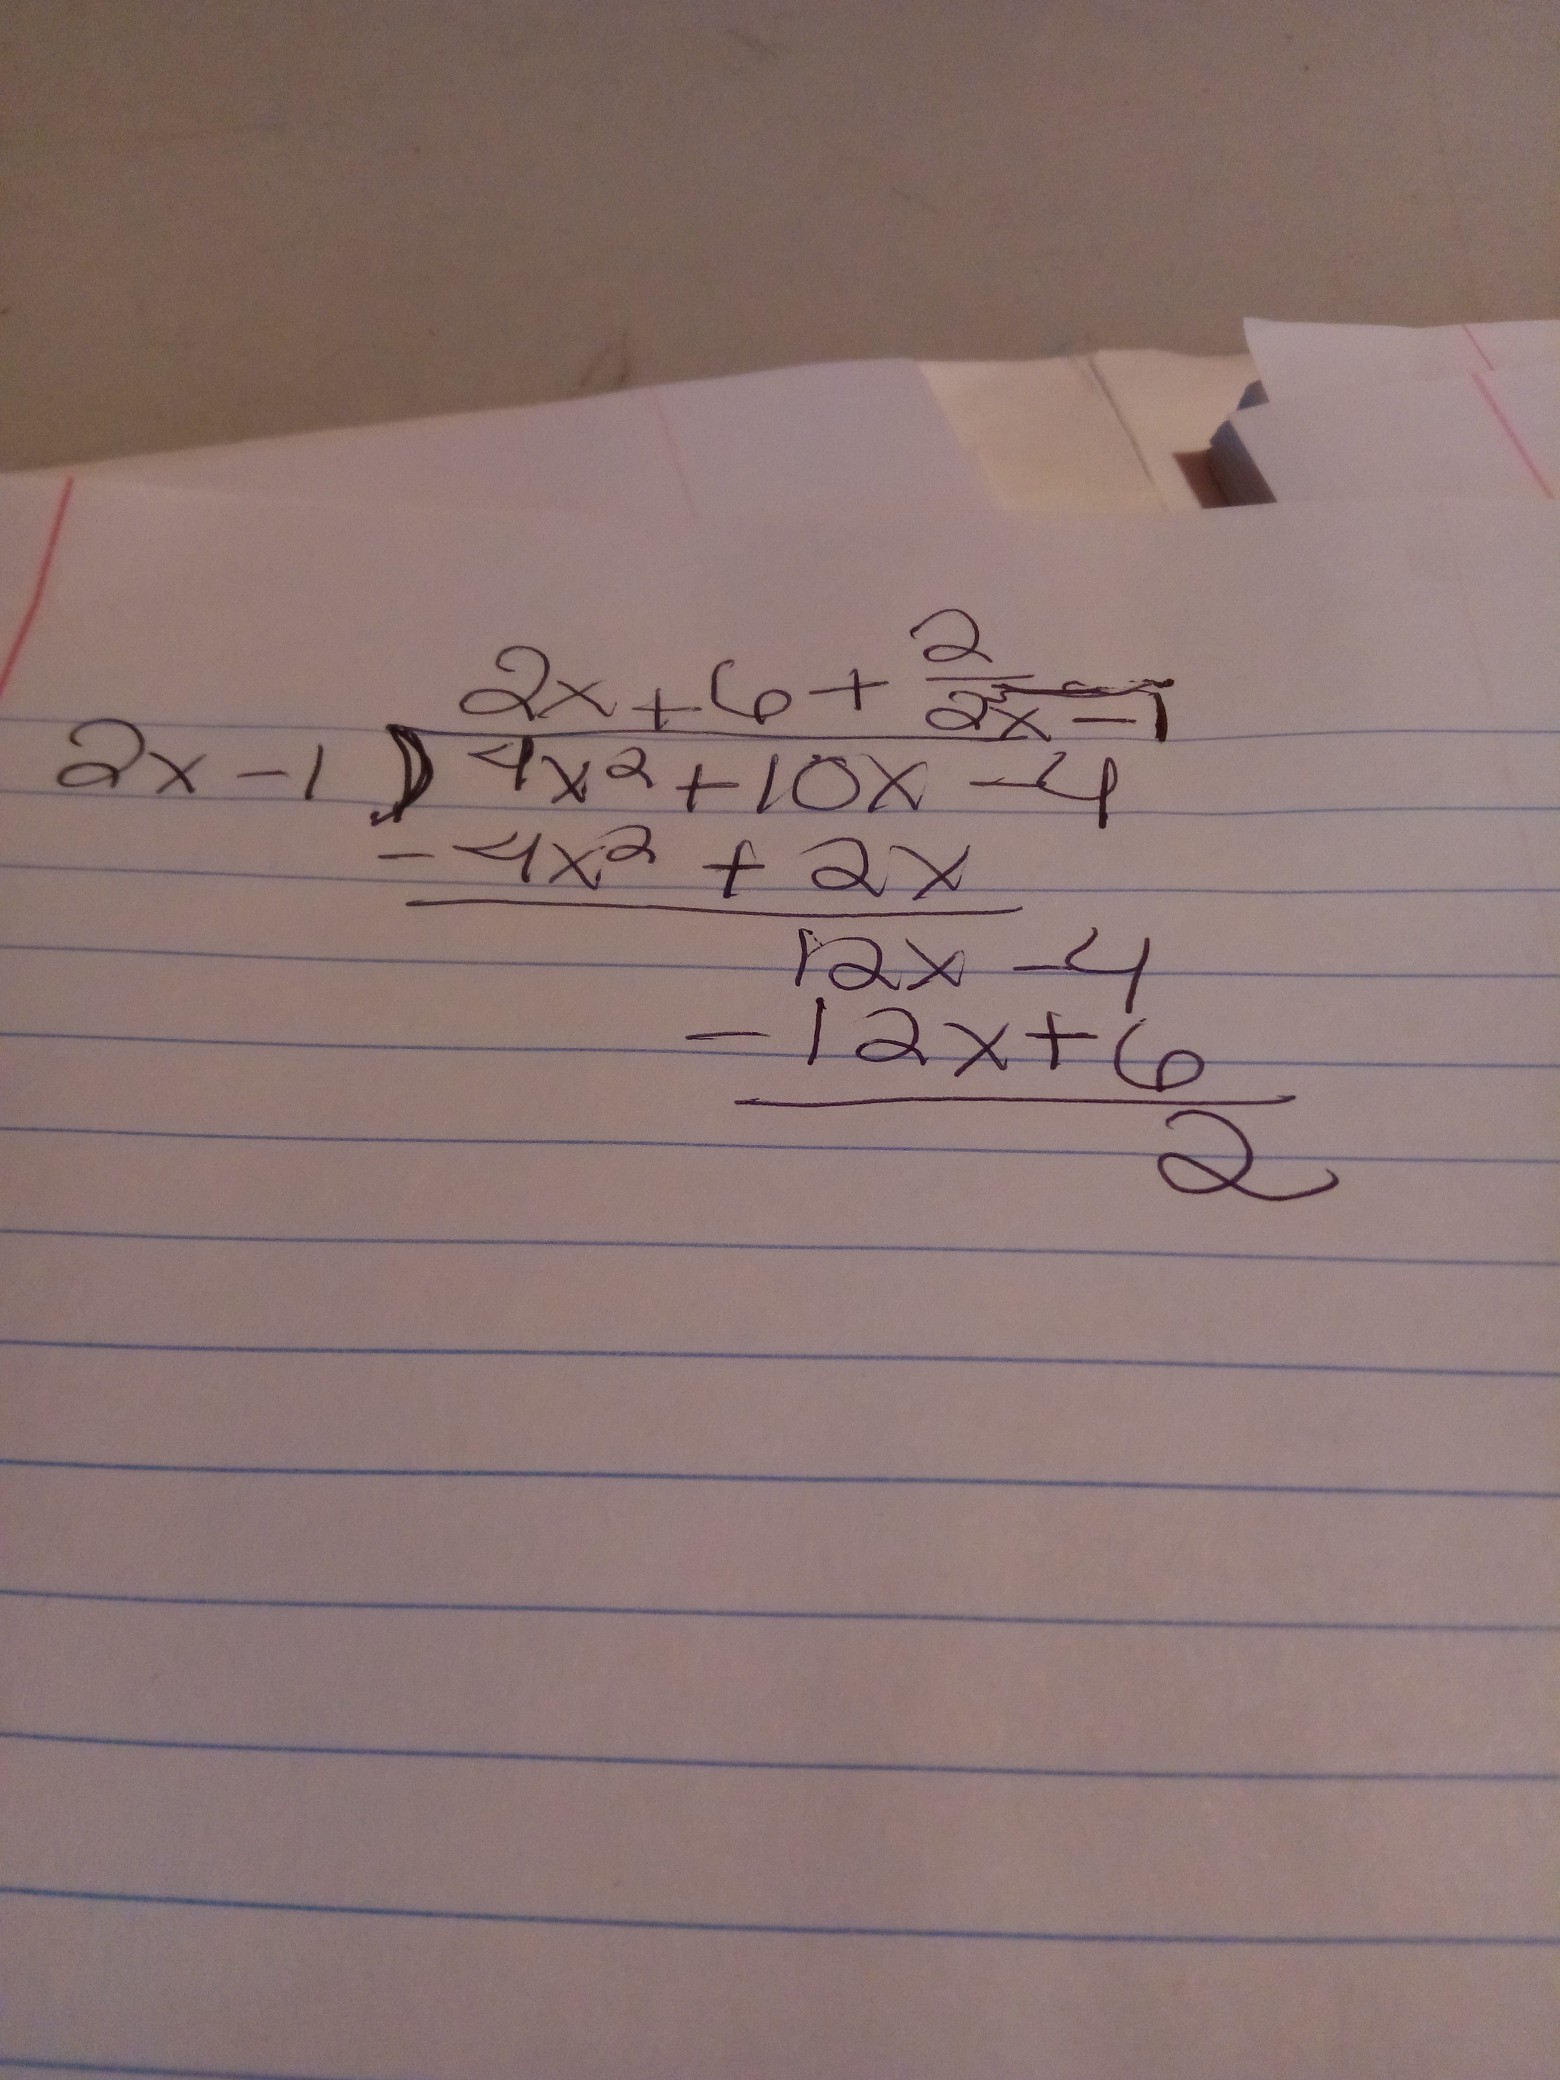 2x + 6 + 2/(2x - 1)
2x - 1 ) 4x² + 10x - 4
- 4x² + 2x
12x - 4
- 12x + 6
2